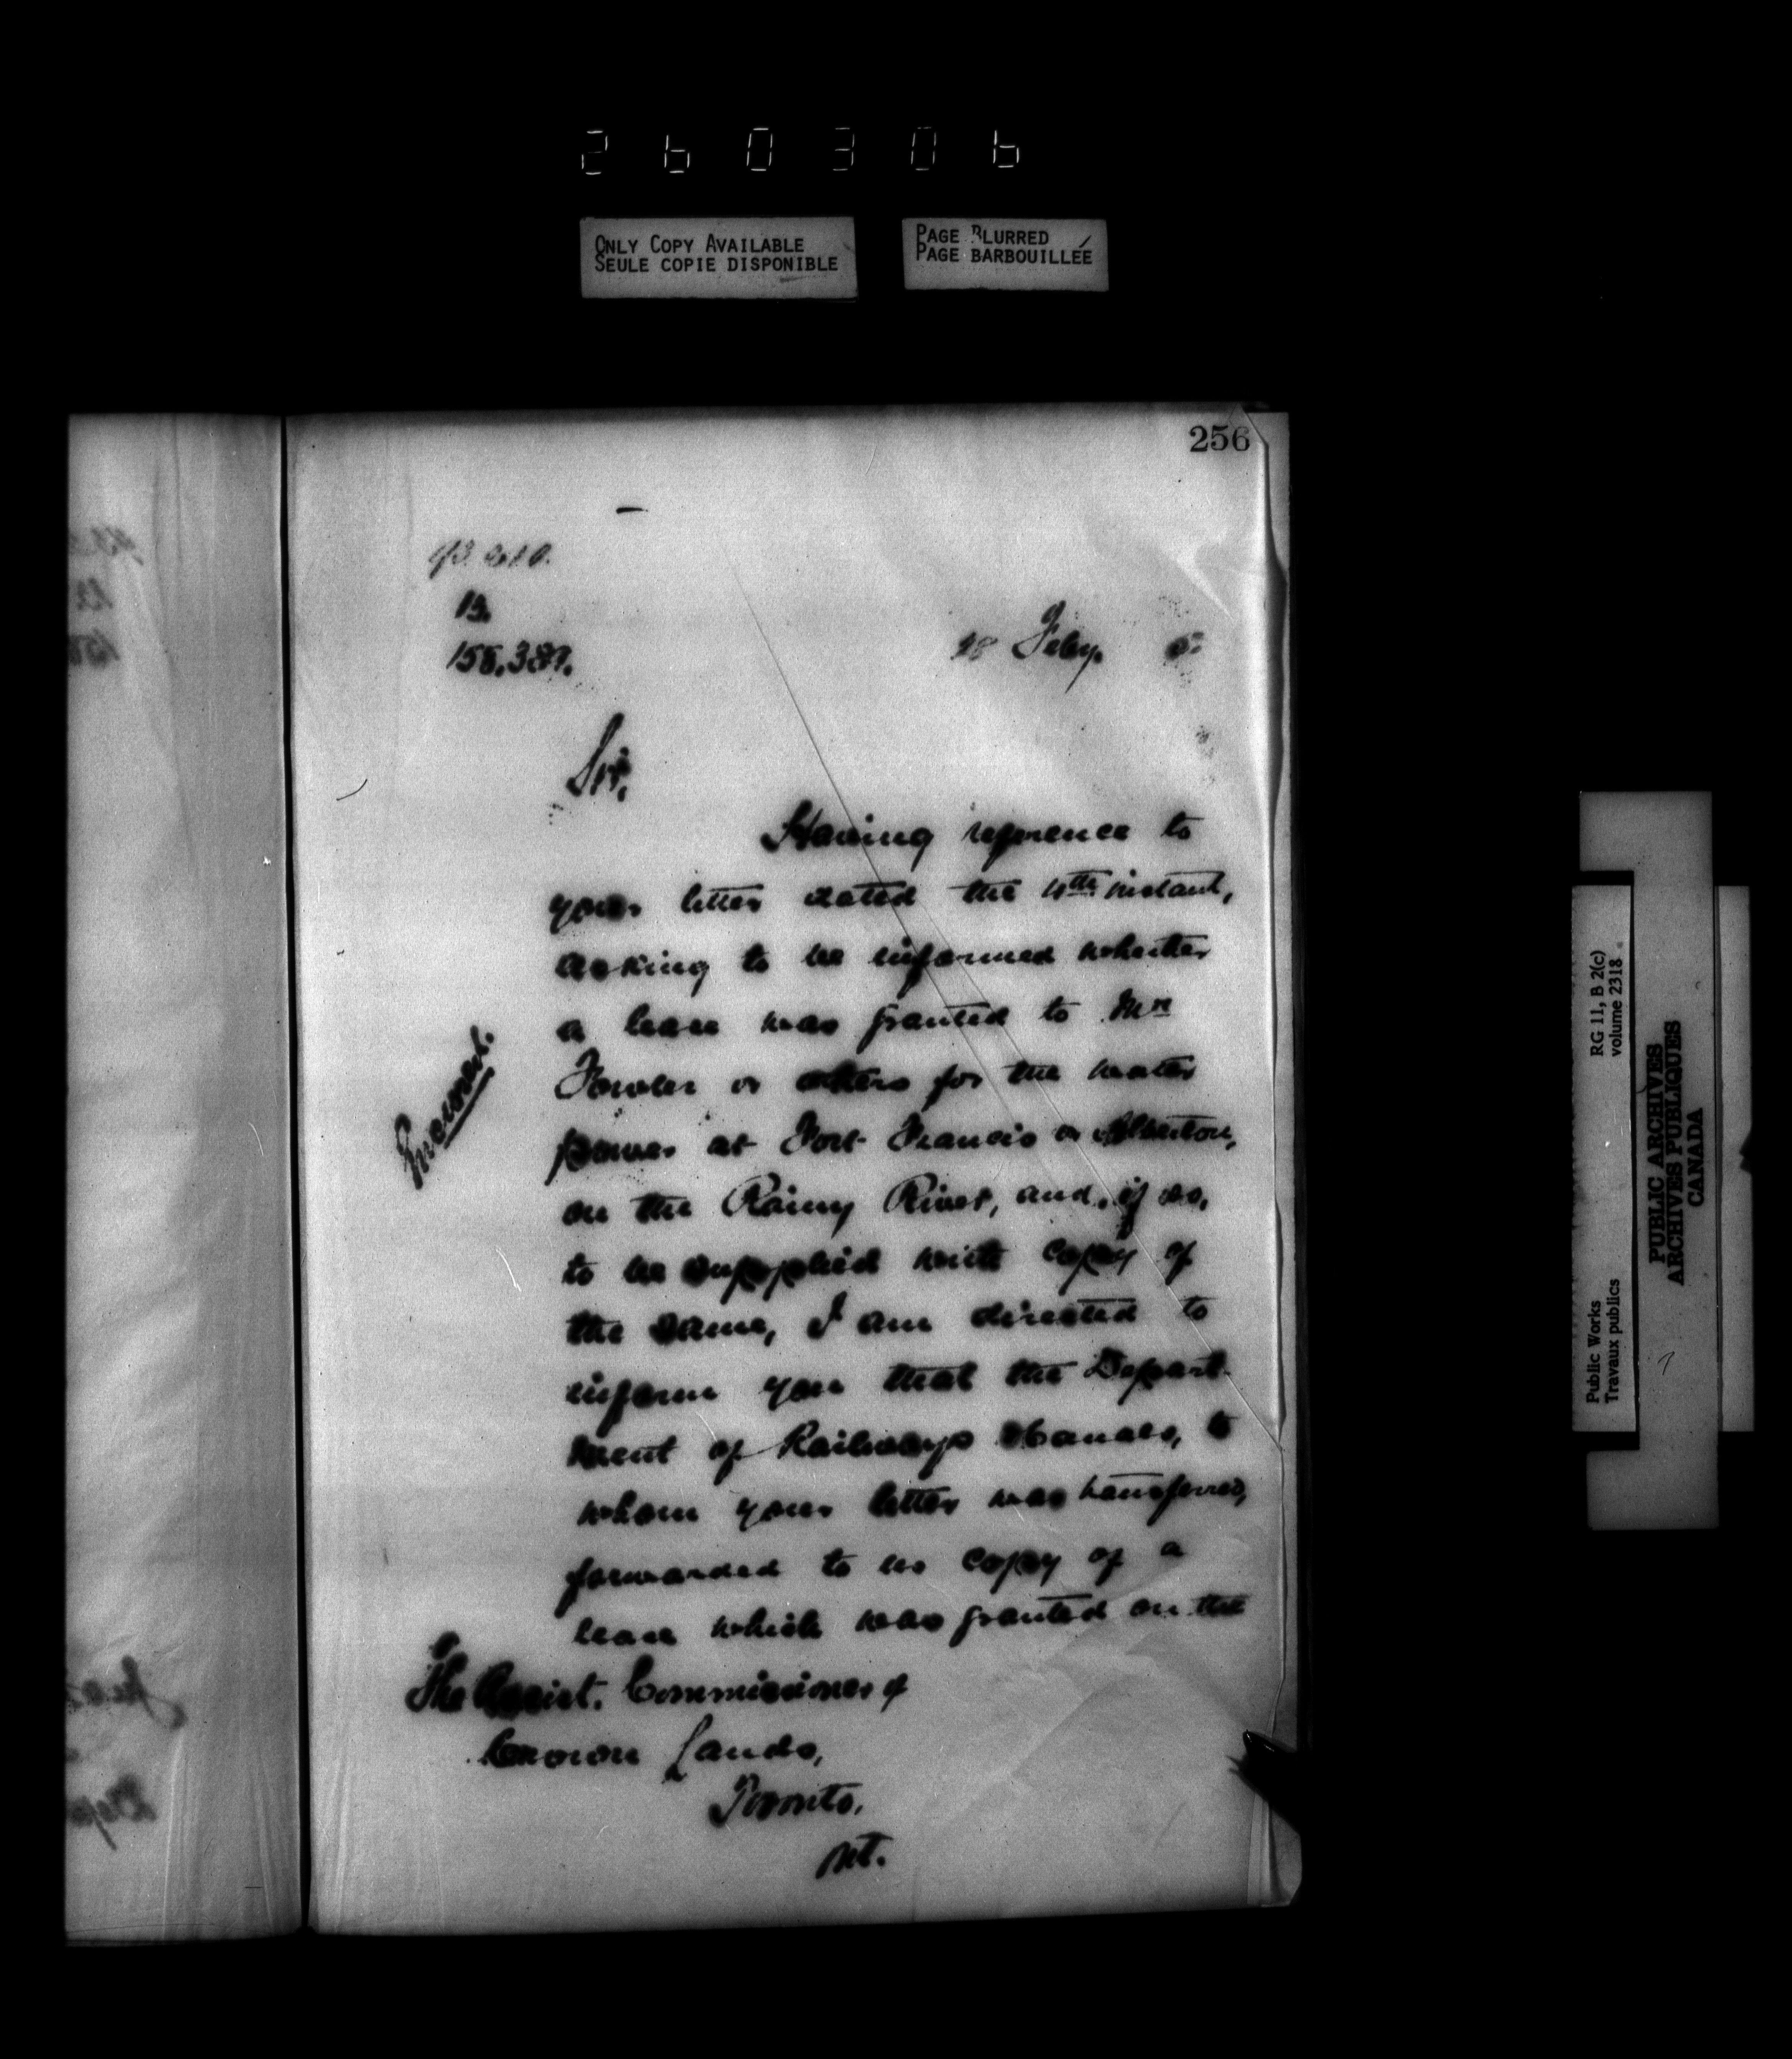 260306
ONLY COPY AVAILABLE
SEULE COPIE DISPONIBLE
PAGE BLURRED
PAGE BARBOUILLÉE
256
15.
Feby.
Sir,
Having reference to
your letter dated the instant,
asking to be informed whether
a lease was granted to Mr
Fowler or others for the water
power at Fort Francis or Alberton,
on the Rainy River, and, if so,
to be supplied with copy of
the same, I am directed to
inform you that the Depart-
ment of Railways & Canals, to
whom your letter was transferred,
forwarded to us copy of a
lease which was granted on the
Enclosed.
The Assist. Commissioner of
Crown Lands,
Toronto,
Ont.
Public Works
Travaux publics
RG 11, B 2(c)
volume 2318
PUBLIC ARCHIVES
ARCHIVES PUBLIQUES
CANADA